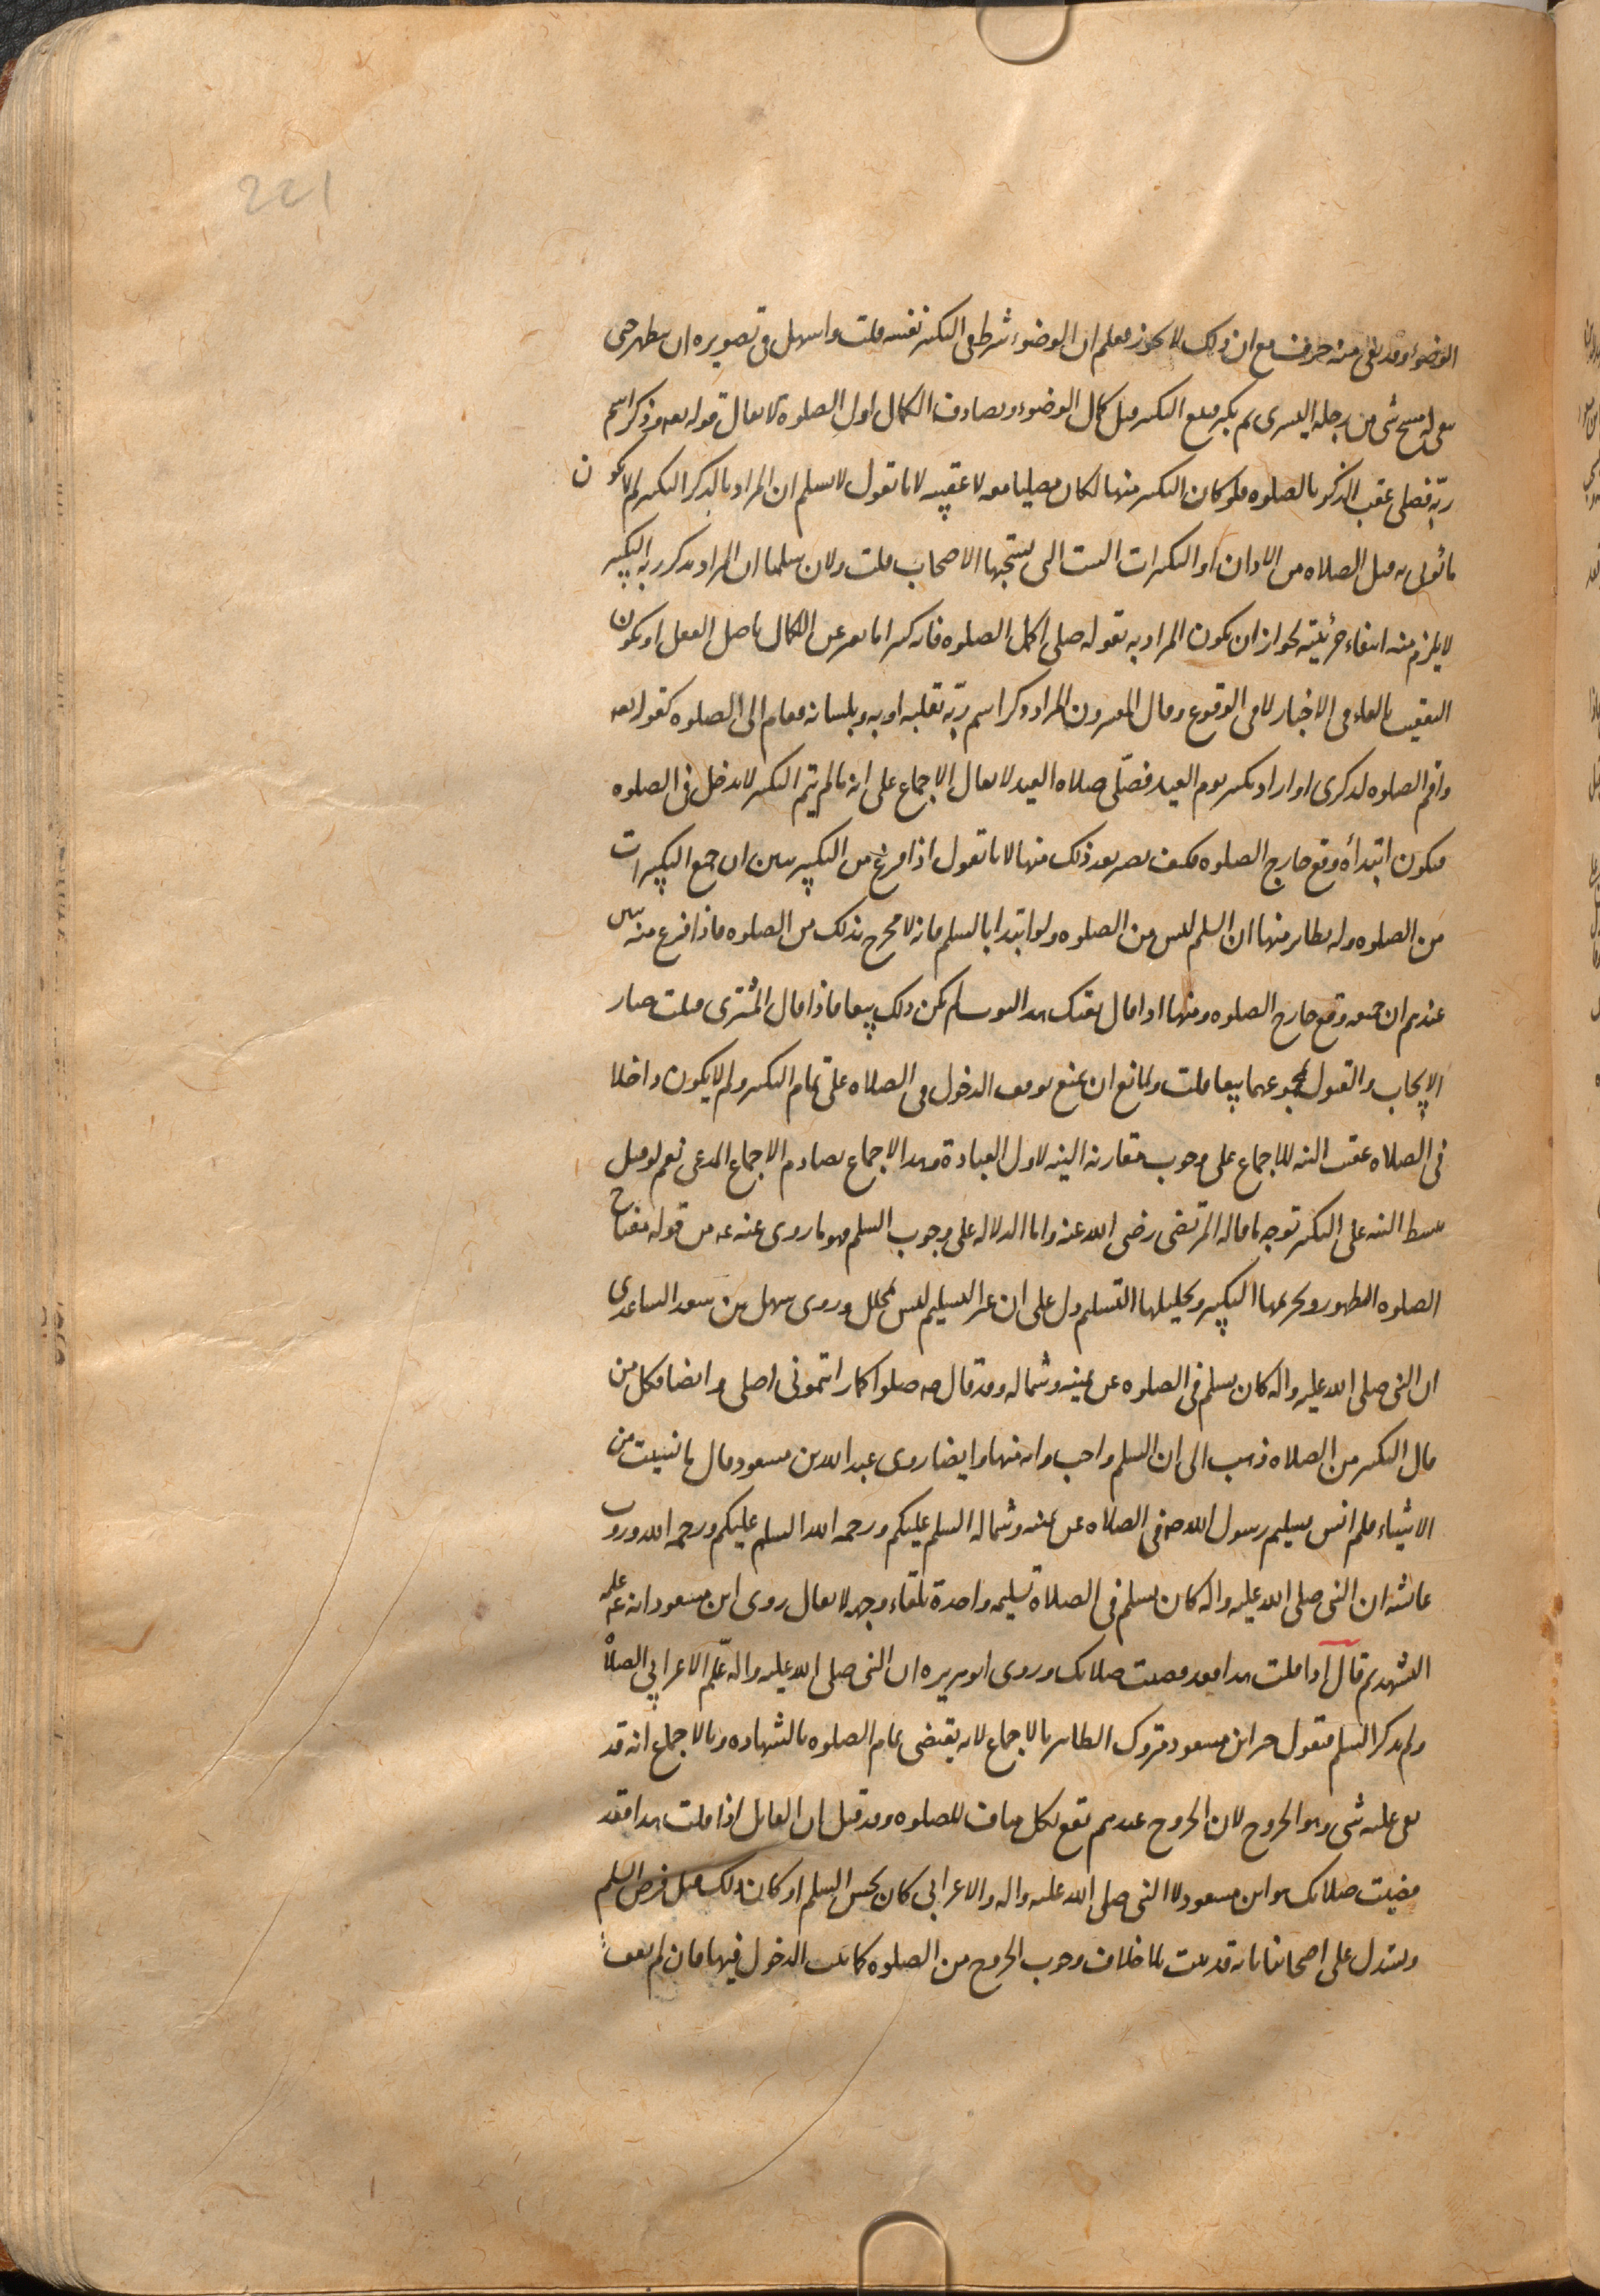 221
الوضوء وقد بقى منه حرف مع ان ذلك لا يجوز فعلم ان الوضوء شرط فى التكبير نفسه قلت واسهل فى تصويره ان يتطهر حتى
يبقى له مسح شى من رجله اليسرى ثم يكبر فيقع التكبير قبل كمال الوضوء ويصادف الكمال اول الصلوة لا يقال قوله تعه وذكر اسم
ربّه فصلى عقب الذكر بالصلوه فلو كان التكبير منها لكان مصليا معه لا عقيبه لانا نقول لا نسلم ان المراد بالذكر التكبير لم لا يكون
ما يؤتى به قبل الصلاه من الاذان او التكبيرات الست التى يستحبها الاصحاب قلت ولان سلمنا ان المراد بذكر ربه التكبير
لا يلزم منه انتفاء جزئيته لجواز ان يكون المراد به بقوله صلى اكمل الصلوه فانه كثيرا ما يعبر عن الكمال باصل الفعل او يكون
التعقيب بالفاء فى الاخبار لا فى الوقوع وقال المفسرون المراد وذكر اسم ربّه بقلبه او به وبلسانه فقام الى الصلوه كقوله تعه
واقم الصلوه لذكرى او اراد تكبير يوم العيد فصلّى صلاه العيد لا يقال الاجماع على انه ما لم يتم التكبير لا يدخل فى الصلوه
فيكون ابتدأه وقع خارج الصلوه فكيف يصير بعد ذلك منها لانا نقول اذا فرغ من التكبير تبين ان جميع التكبيرات
من الصلوه وله نظائر منها ان السلم ليس من الصلوه ولو ابتدا بالسلم فانه لا يخرج بذلك من الصلوه فاذا فرغ منه تبين
عندهم ان جميعه وقع خارج الصلوه ومنها اذا قال بعتك هذا الثوب لم يكن ذلك بيعا فاذا قال المشترى قبلت صار
الايجاب والقبول بمجموعهما بيعا قلت ولمانع ان يمنع توقف الدخول فى الصلاه على تمام التكبير ولم لا يكون داخلا
فى الصلاه عقيب النيه للاجماع على وجوب مقارنه النيه لاول العبادة وهذا الاجماع يصادم الاجماع المدعى نعم لو قيل
ببسط النيه على التكبير توجه ما قاله المرتضى رضى الله عنه واما الدلاله على وجوب السلم فهو ما روى عنه عه من قوله مفتاح
الصلوه الطهور وتحريمها التكبير وتحليلها التسليم دل على ان غير التسليم ليس بمحلل وروى سهل بن سعد الساعدى
ان النبى صلى الله عليه واله كان يسلم فى الصلوه عن يمينه وشماله وقد قال صه صلوا كما رايتمونى اصلى وايضا فكل من
قال التكبير من الصلاه ذهب الى ان السلم واجب وانه منها وايضا روى عبد الله بن مسعود قال ما نسيت من
الاشياء فلم انس تسليم رسول الله صه فى الصلاه عن يمينه وشماله السلم عليكم ورحمه الله السلم عليكم ورحمه الله وروت
عائشه ان النبى صلى الله عليه واله كان يسلم فى الصلاة تسليمه واحدة تلقاء وجهه لا يقال روى ابن مسعود انه عه علمه
التشهد ثم قال اذا قلت هذا فقد قضيت صلاتك وروى ابو هريره ان النبى صلى الله عليه واله علّم الاعرابى الصلاه
ولم يذكر السلم فنقول خبر ابن مسعود متروك الظاهر بالاجماع لانه يقتضى تمام الصلوه بالشهاده وبالاجماع انه قد
بقى عليه شى وهو الخروج لان الخروج عندهم يقع بكل مناف للصلوه وقد قيل ان القائل اذا قلت هذا فقد
قضيت صلاتك هو ابن مسعود لا النبى صلى الله عليه واله والاعرابى كان يحسن السلم او كان ذلك قبل فرض السلم
ويستدل على اصحابنا بانه قد ثبت بلا خلاف وجوب الخروج من الصلوه كما ثبت الدخول فيها فان لم يقف